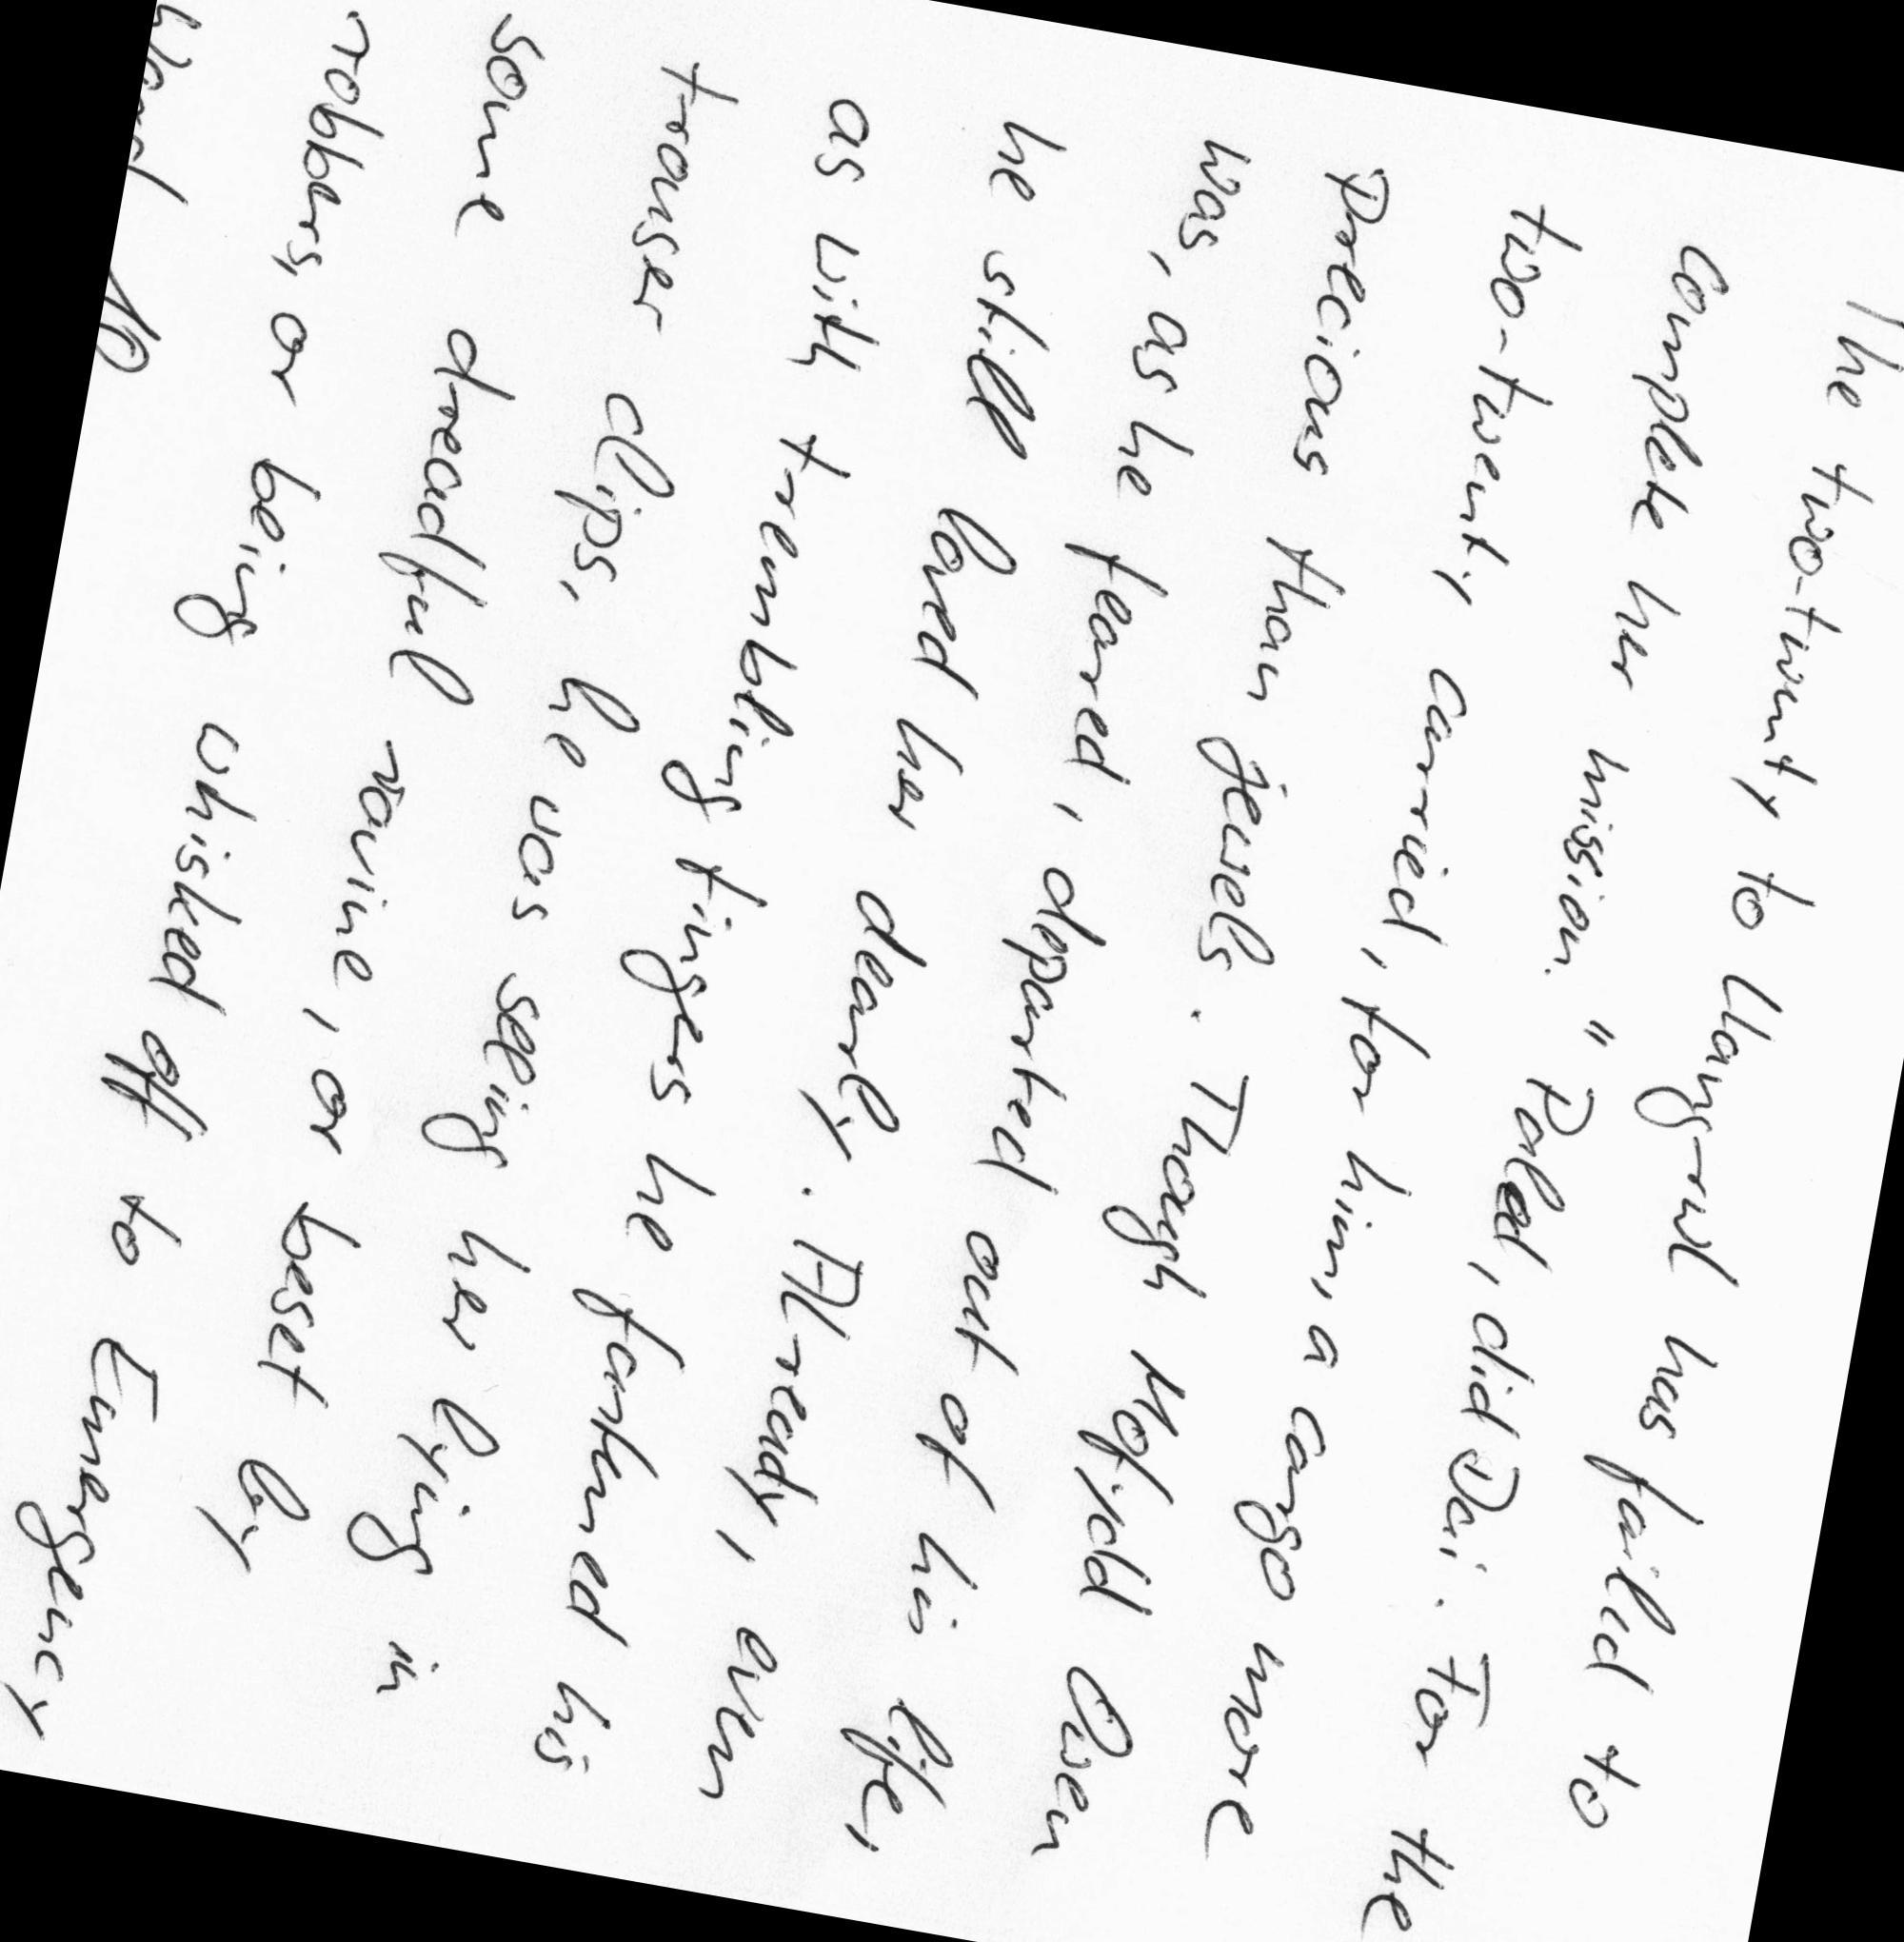 The two-twenty to Llangrwl has failed to
complete her mission." Paled, did Dai. For the
two-twenty carried, for him, a cargo more
precious than jewels. Though Mofydd Owen
was, as he feared, departed out of his life,
he still loved her dearly. Already, even
as with trembling fingers he fastened his
trouser clips, he was seeing her lying in
some dreadful ravine, or beset by
robbers, or being whisked off to Emergency
Ward 10